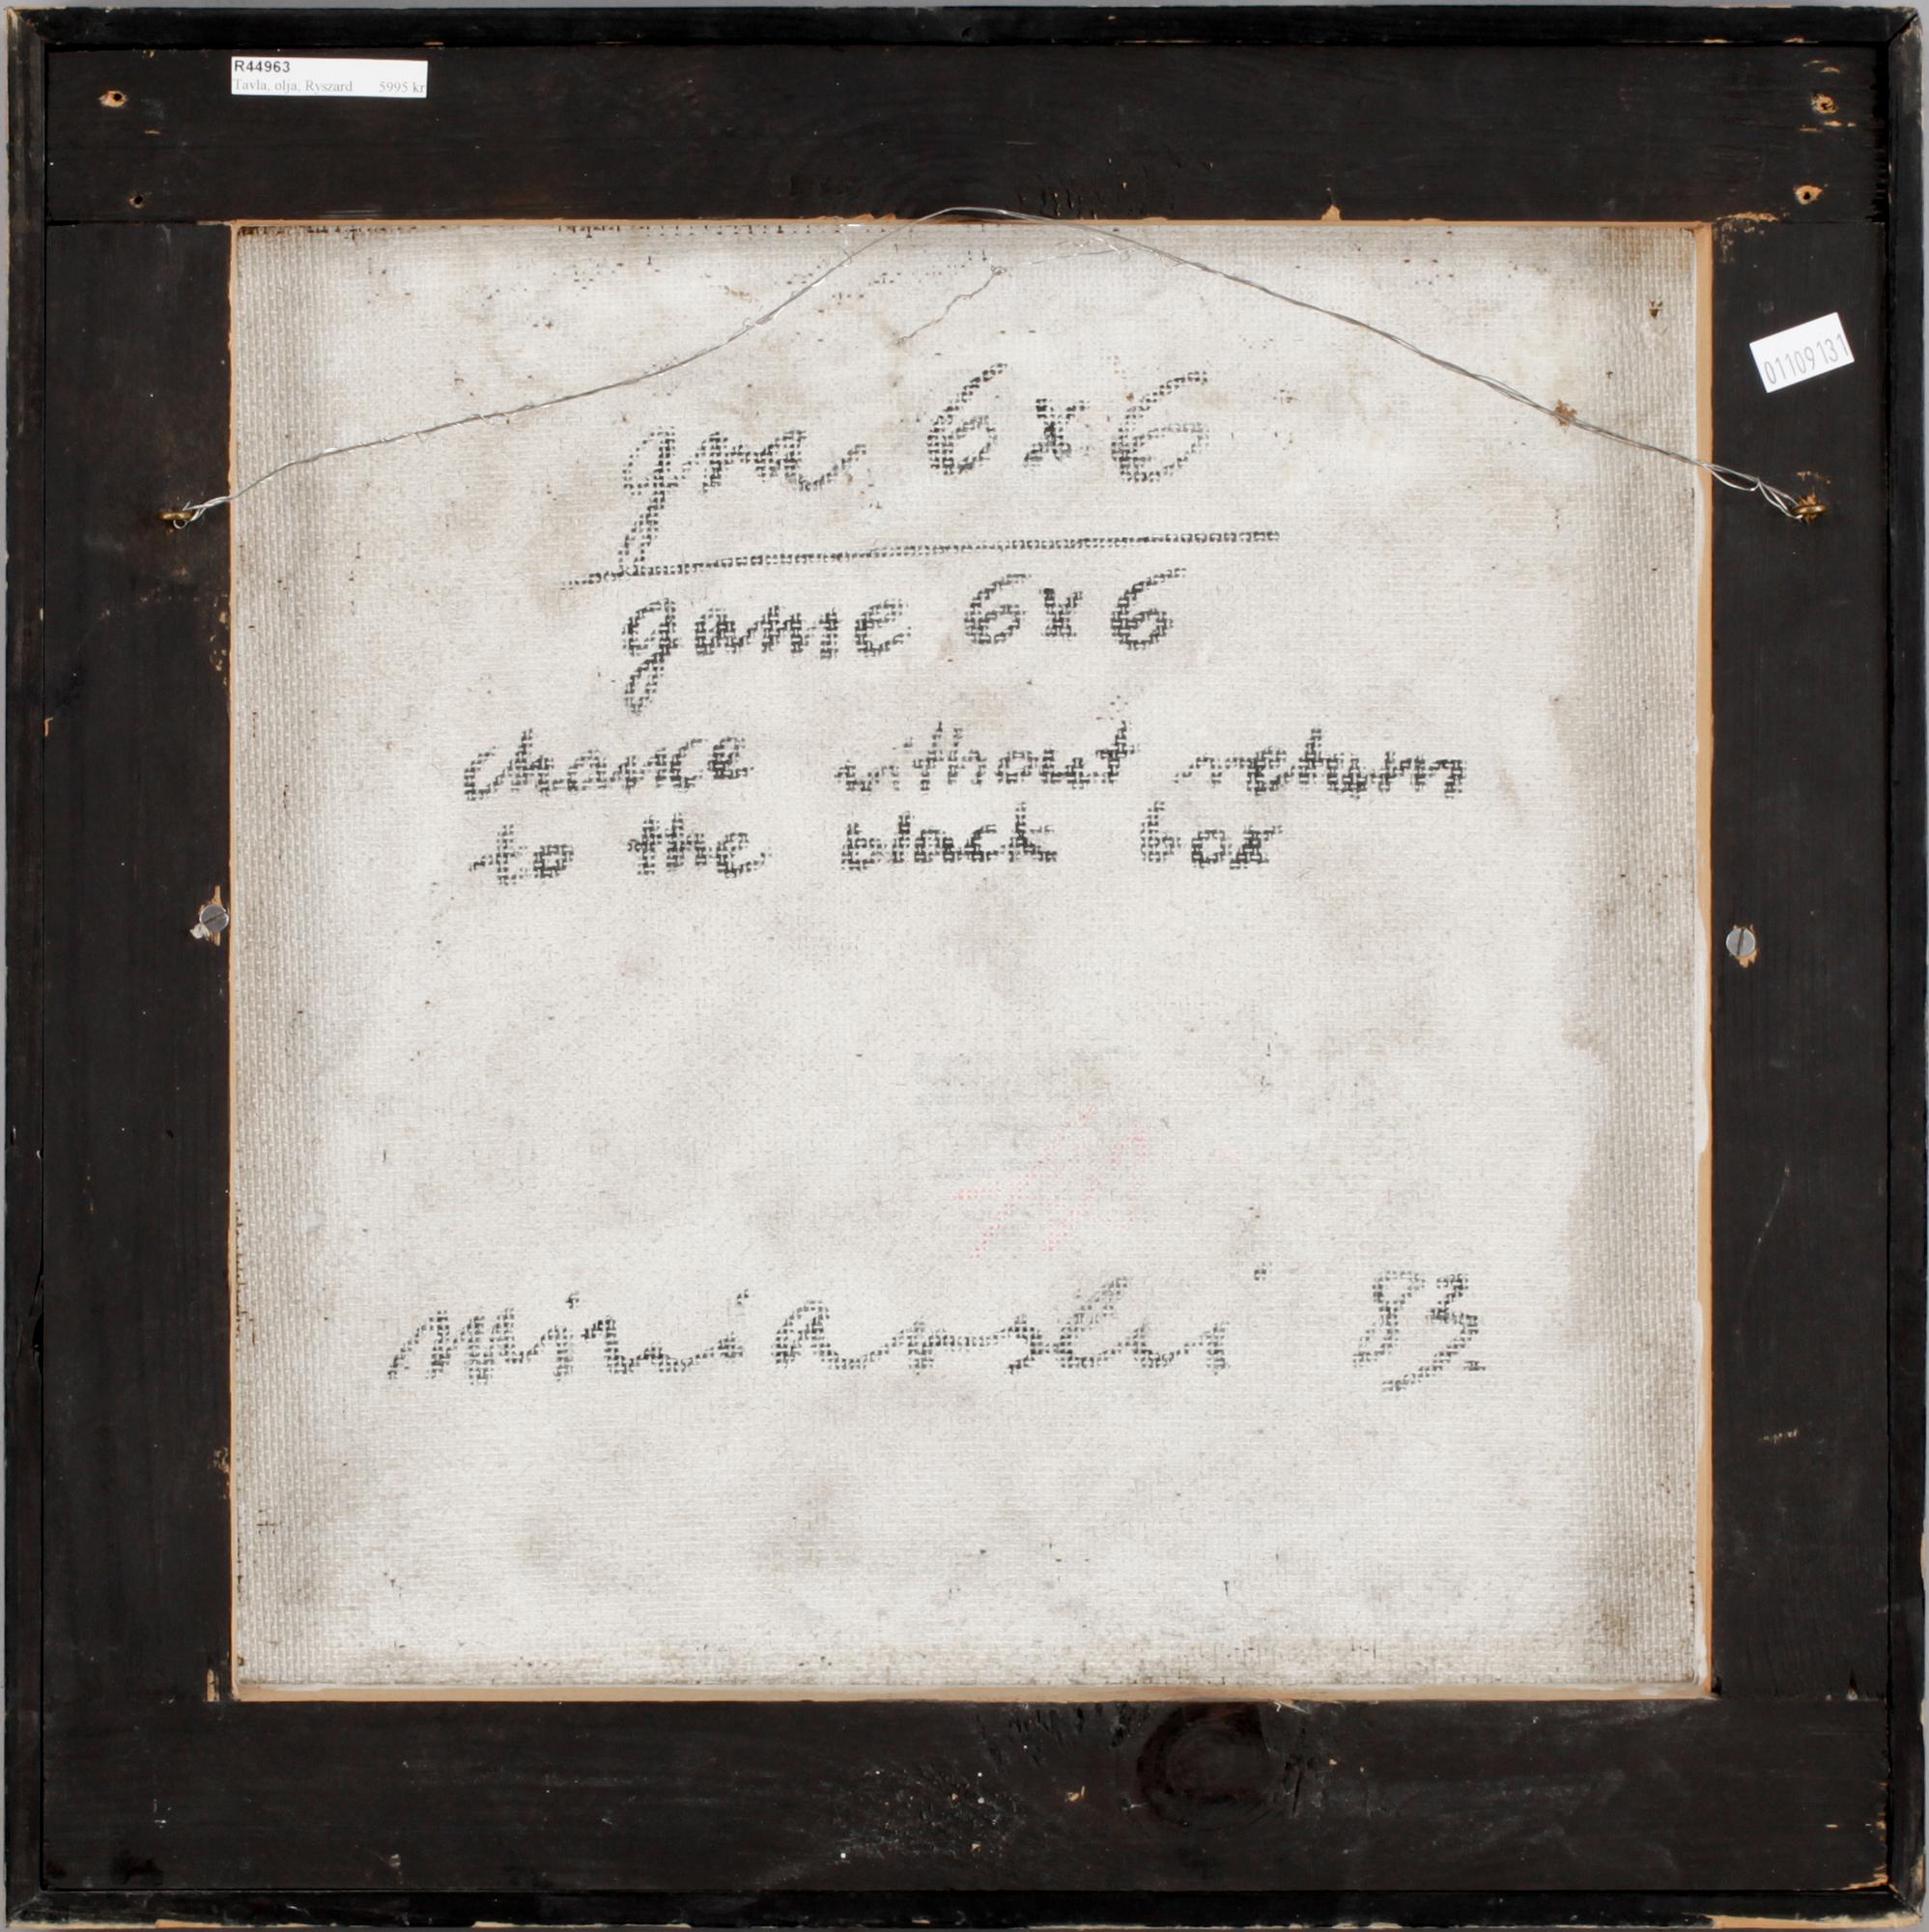 R44963
Tavla, olja, Ryszard 5995 kr
01109131
gra 6x6
game 6x6
chance without return
to the black box
Winiarski 83